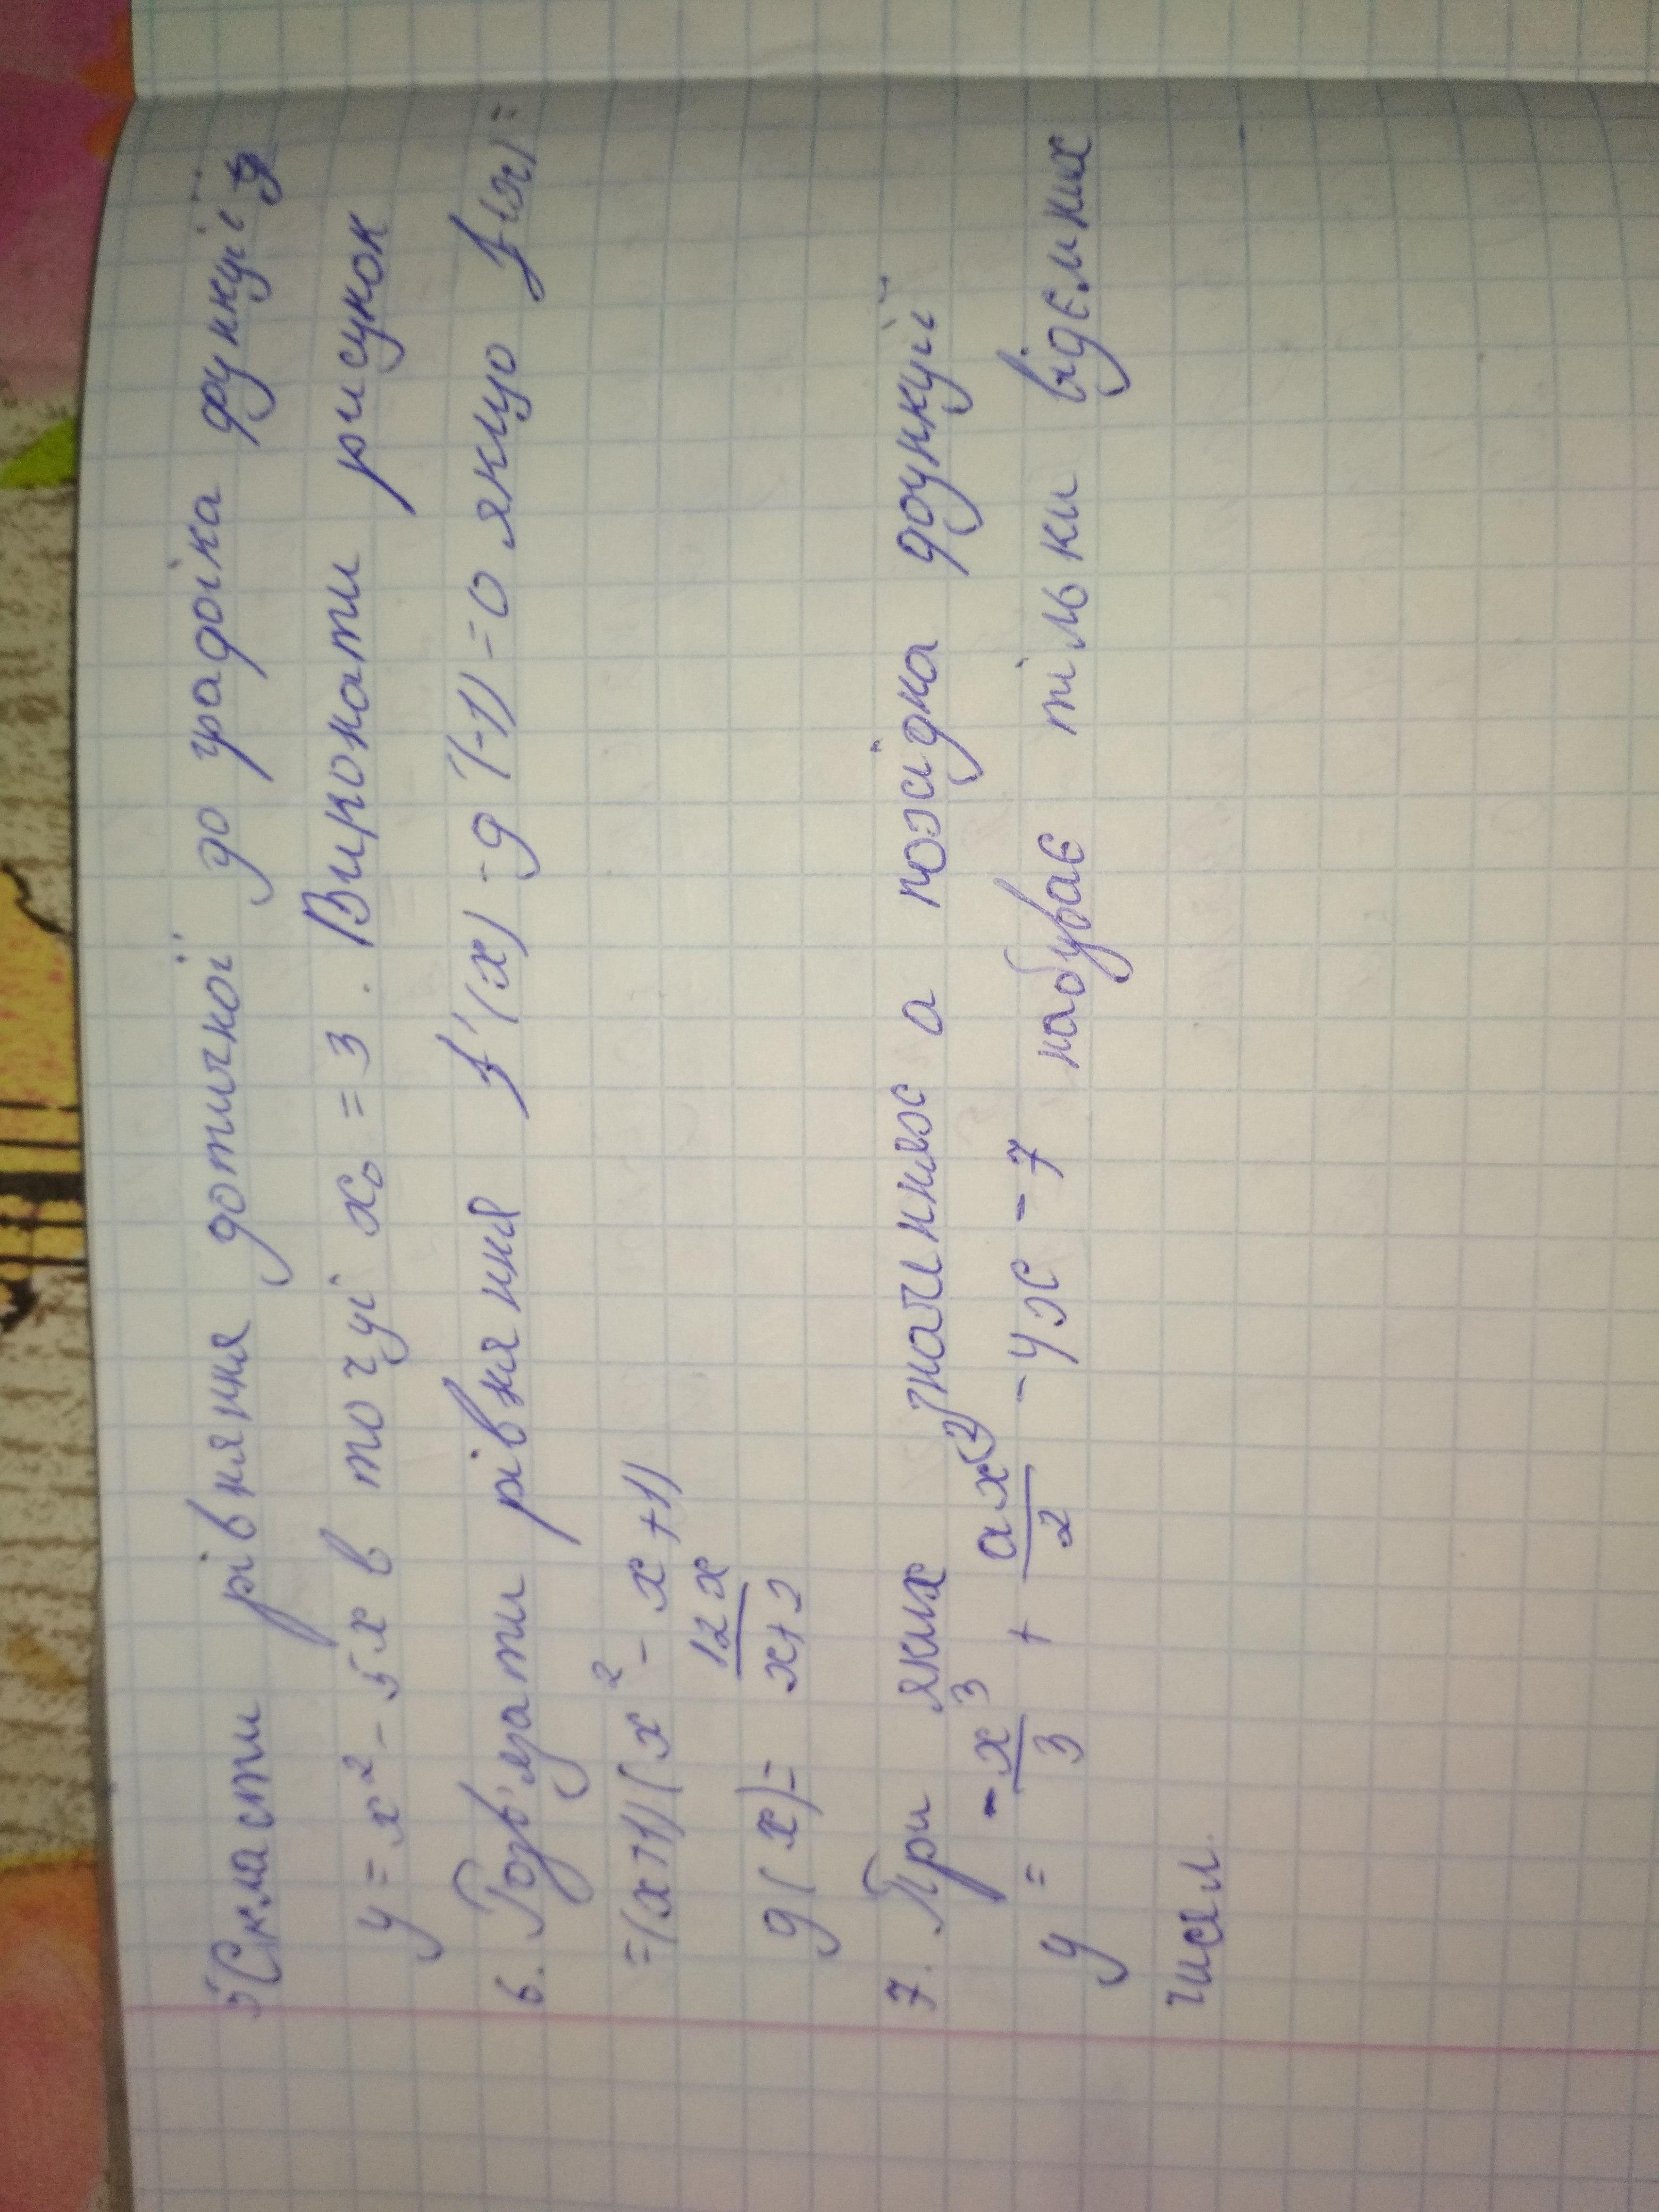 5 Скласти рівняння дотичної до графіка функції у
y = x² - 5x в точці x₀ = 3 . Виконати рисунок
6. Розв'язати рівняння f'(x) - g'(-1) = 0 якщо f(x) =
= (x+1)(x² - x + 1)
g(x) = 12x/(x+2)
7. При яких значиннях а похідна функції
y = -x³/3 + ax²/2 - 4x - 7 набуває тільки відємних
чисел